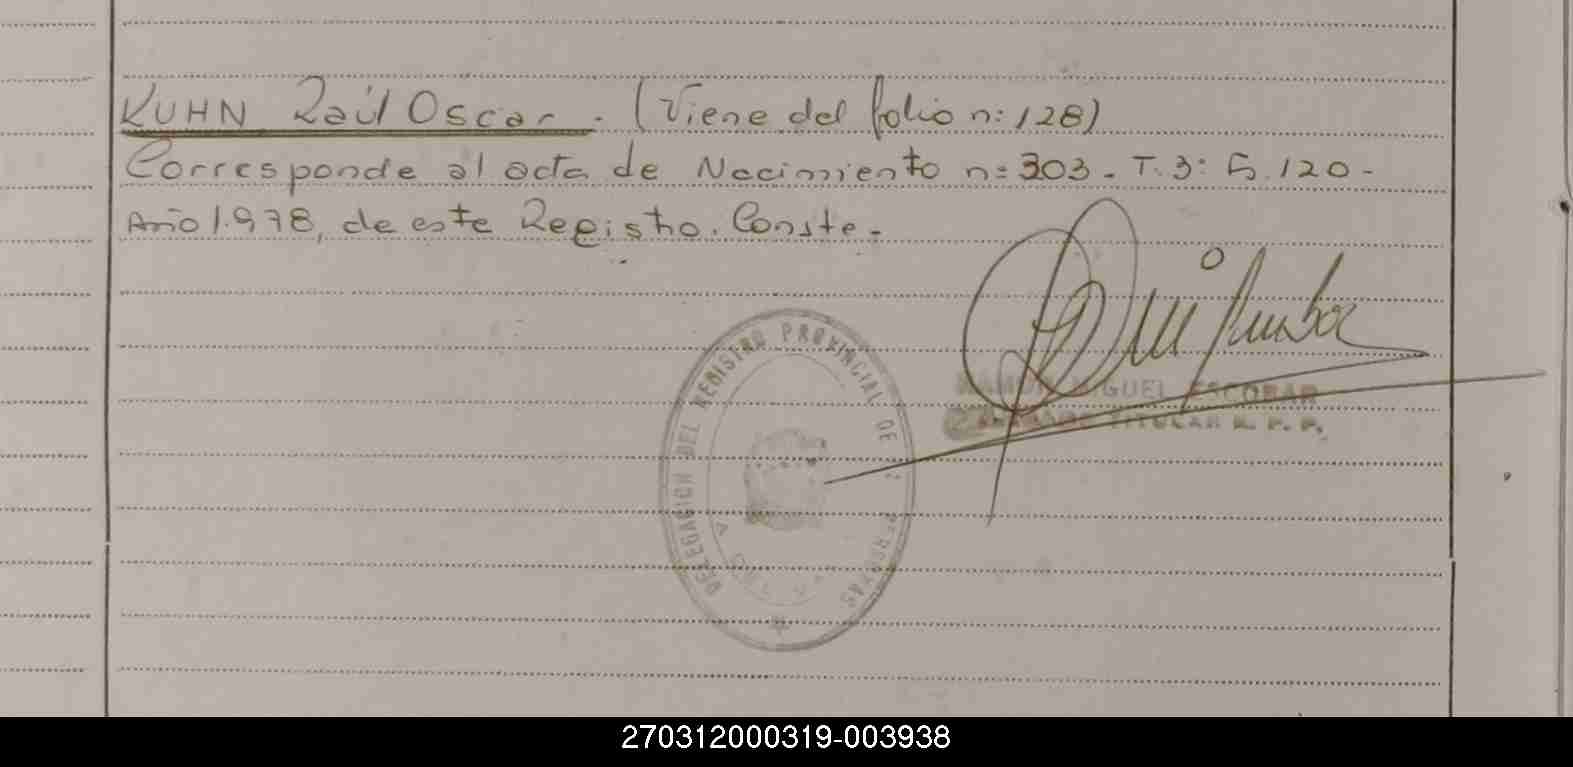 KUHN Raúl Oscar. (Viene del folio n: 128)
Corresponde al acta de Nacimiento n: 303. T. 3: F. 120-
Año 1.978, de este Registro. Conste.-
RAMON MIGUEL ESCOBAR
TITULAR R. P. P.
DELEGACION DEL REGISTRO PROVINCIAL DE LAS PERSONAS
270312000319-003938